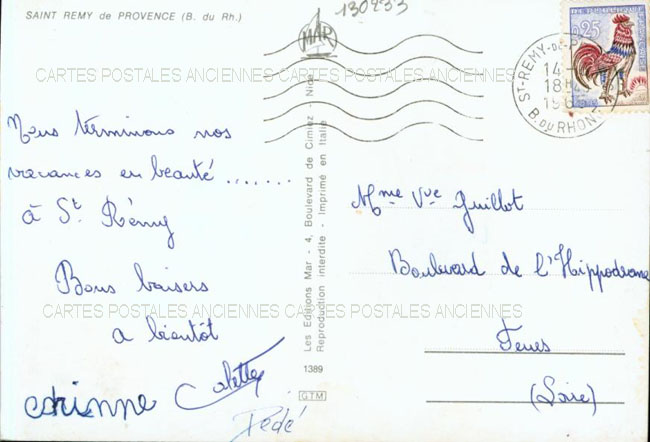 SAINT REMY de PROVENCE (B. du Rh.)
130233
MAR
0,25
ST-REMY-DE-P
14-
18H
196
B. DU RHONE
CARTES POSTALES ANCIENNES CARTES POSTALES ANCIENNES
Nous terminons nos
vacances en beauté .......
à St. Rémy
Bons baisers
a bientôt
corinne Colette
Dédé
CARTES POSTALES ANCIENNES CARTES POSTALES ANCIENNES
Les Editions Mar - 4, Boulevard de Cimiez - Nice
Reproduction interdite - Imprimé en Italie
1389
G.T.M
Mme Vve Guillot
Boulevard de l'Hippodrome
Feurs
(Loire)